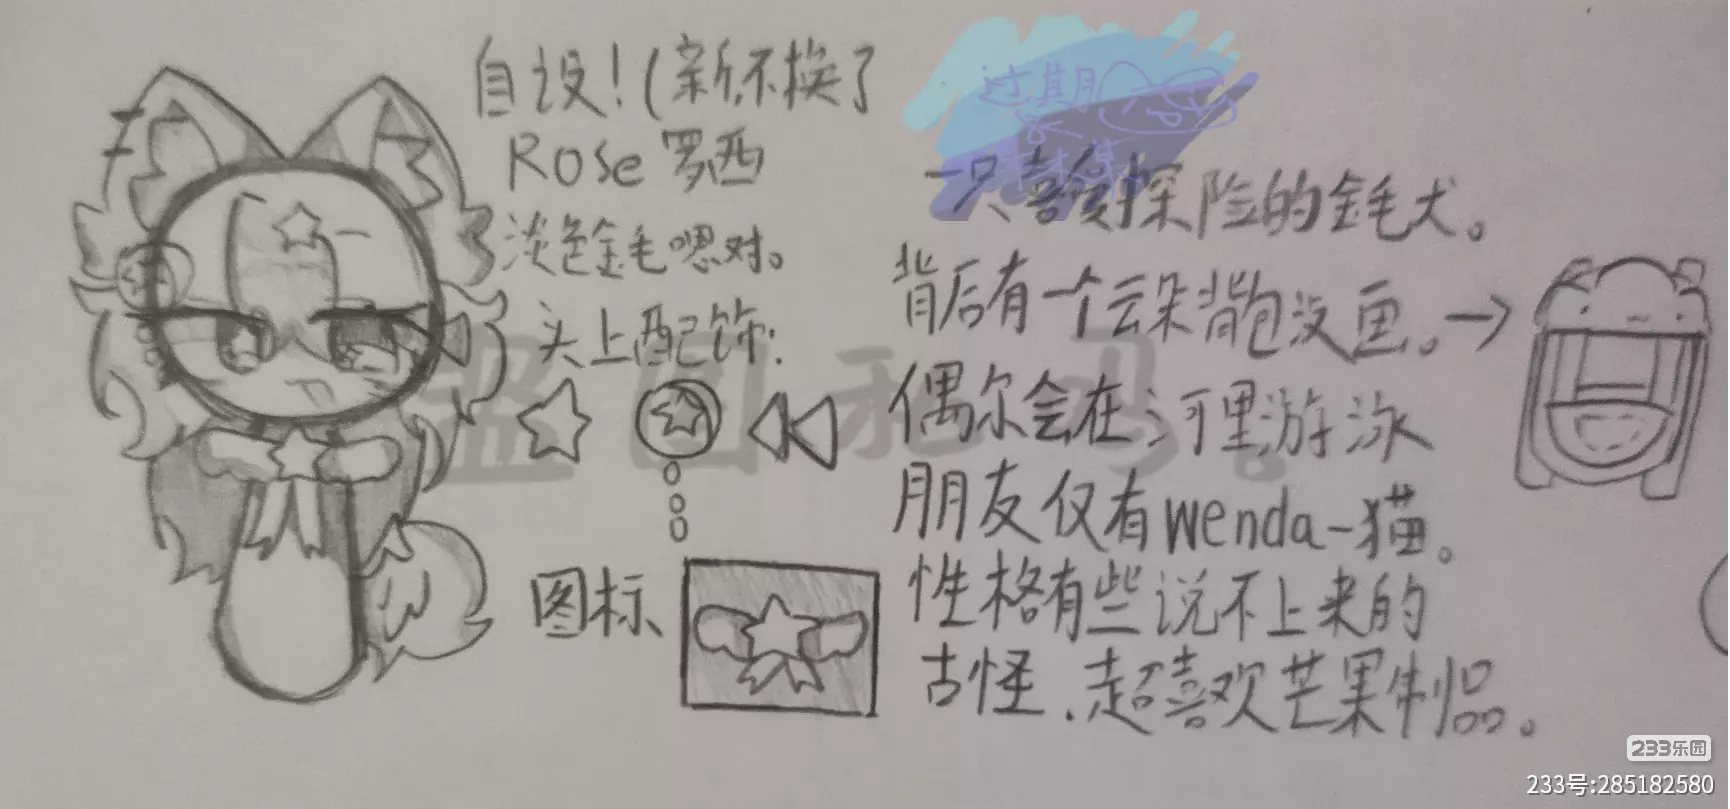 自设！（新，不换了
Rose 罗西
淡色金毛嗯对。
头上配饰：
图标、
过期
一只喜爱探险的金毛犬。
背后有一个云朵背包没画。→
偶尔会在河里游泳
朋友仅有wenda-猫。
性格有些说不上来的
古怪．超喜欢芒果制品。
盗图死妈。
233乐园
233号:285182580